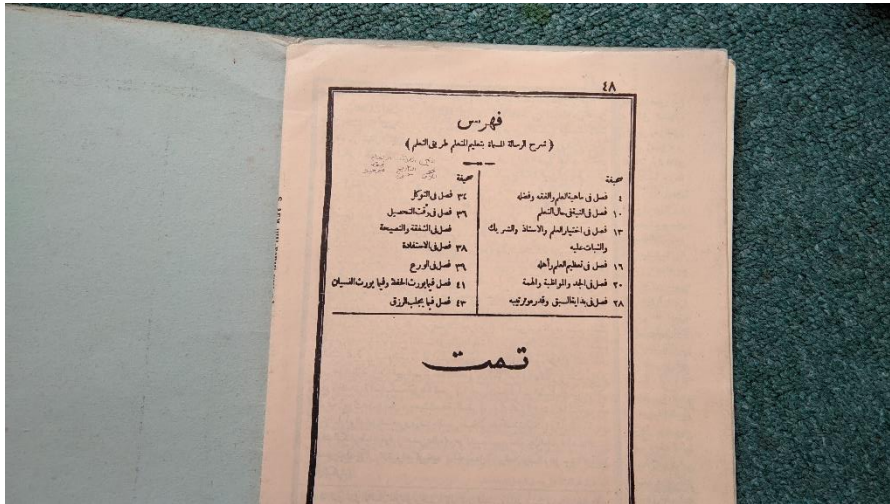 ٤٨
فهرس
( شرح الرسالة المسماة بتعليم المتعلم طريق التعلم )
صحيفة
٤ فصل فى ماهية العلم والفقه وفضله
١٠ فصل فى النية فى حال التعلم
١٣ فصل فى اختيار العلم والاستاذ والشريك
والثبات عليه
١٦ فصل فى تعظيم العلم وأهله
٢٠ فصل فى الجد والمواظبة والهمة
٢٨ فصل فى بداية السبق وقدره وترتيبه
صحيفة
٣٤ فصل فى التوكل
٣٦ فصل فى وقت التحصيل
فصل فى الشفقة والنصيحة
٣٨ فصل فى الاستفادة
٣٩ فصل فى الورع
٤١ فصل فيما يورث الحفظ وفيما يورث النسيان
٤٣ فصل فيما يجلب الرزق
تمت